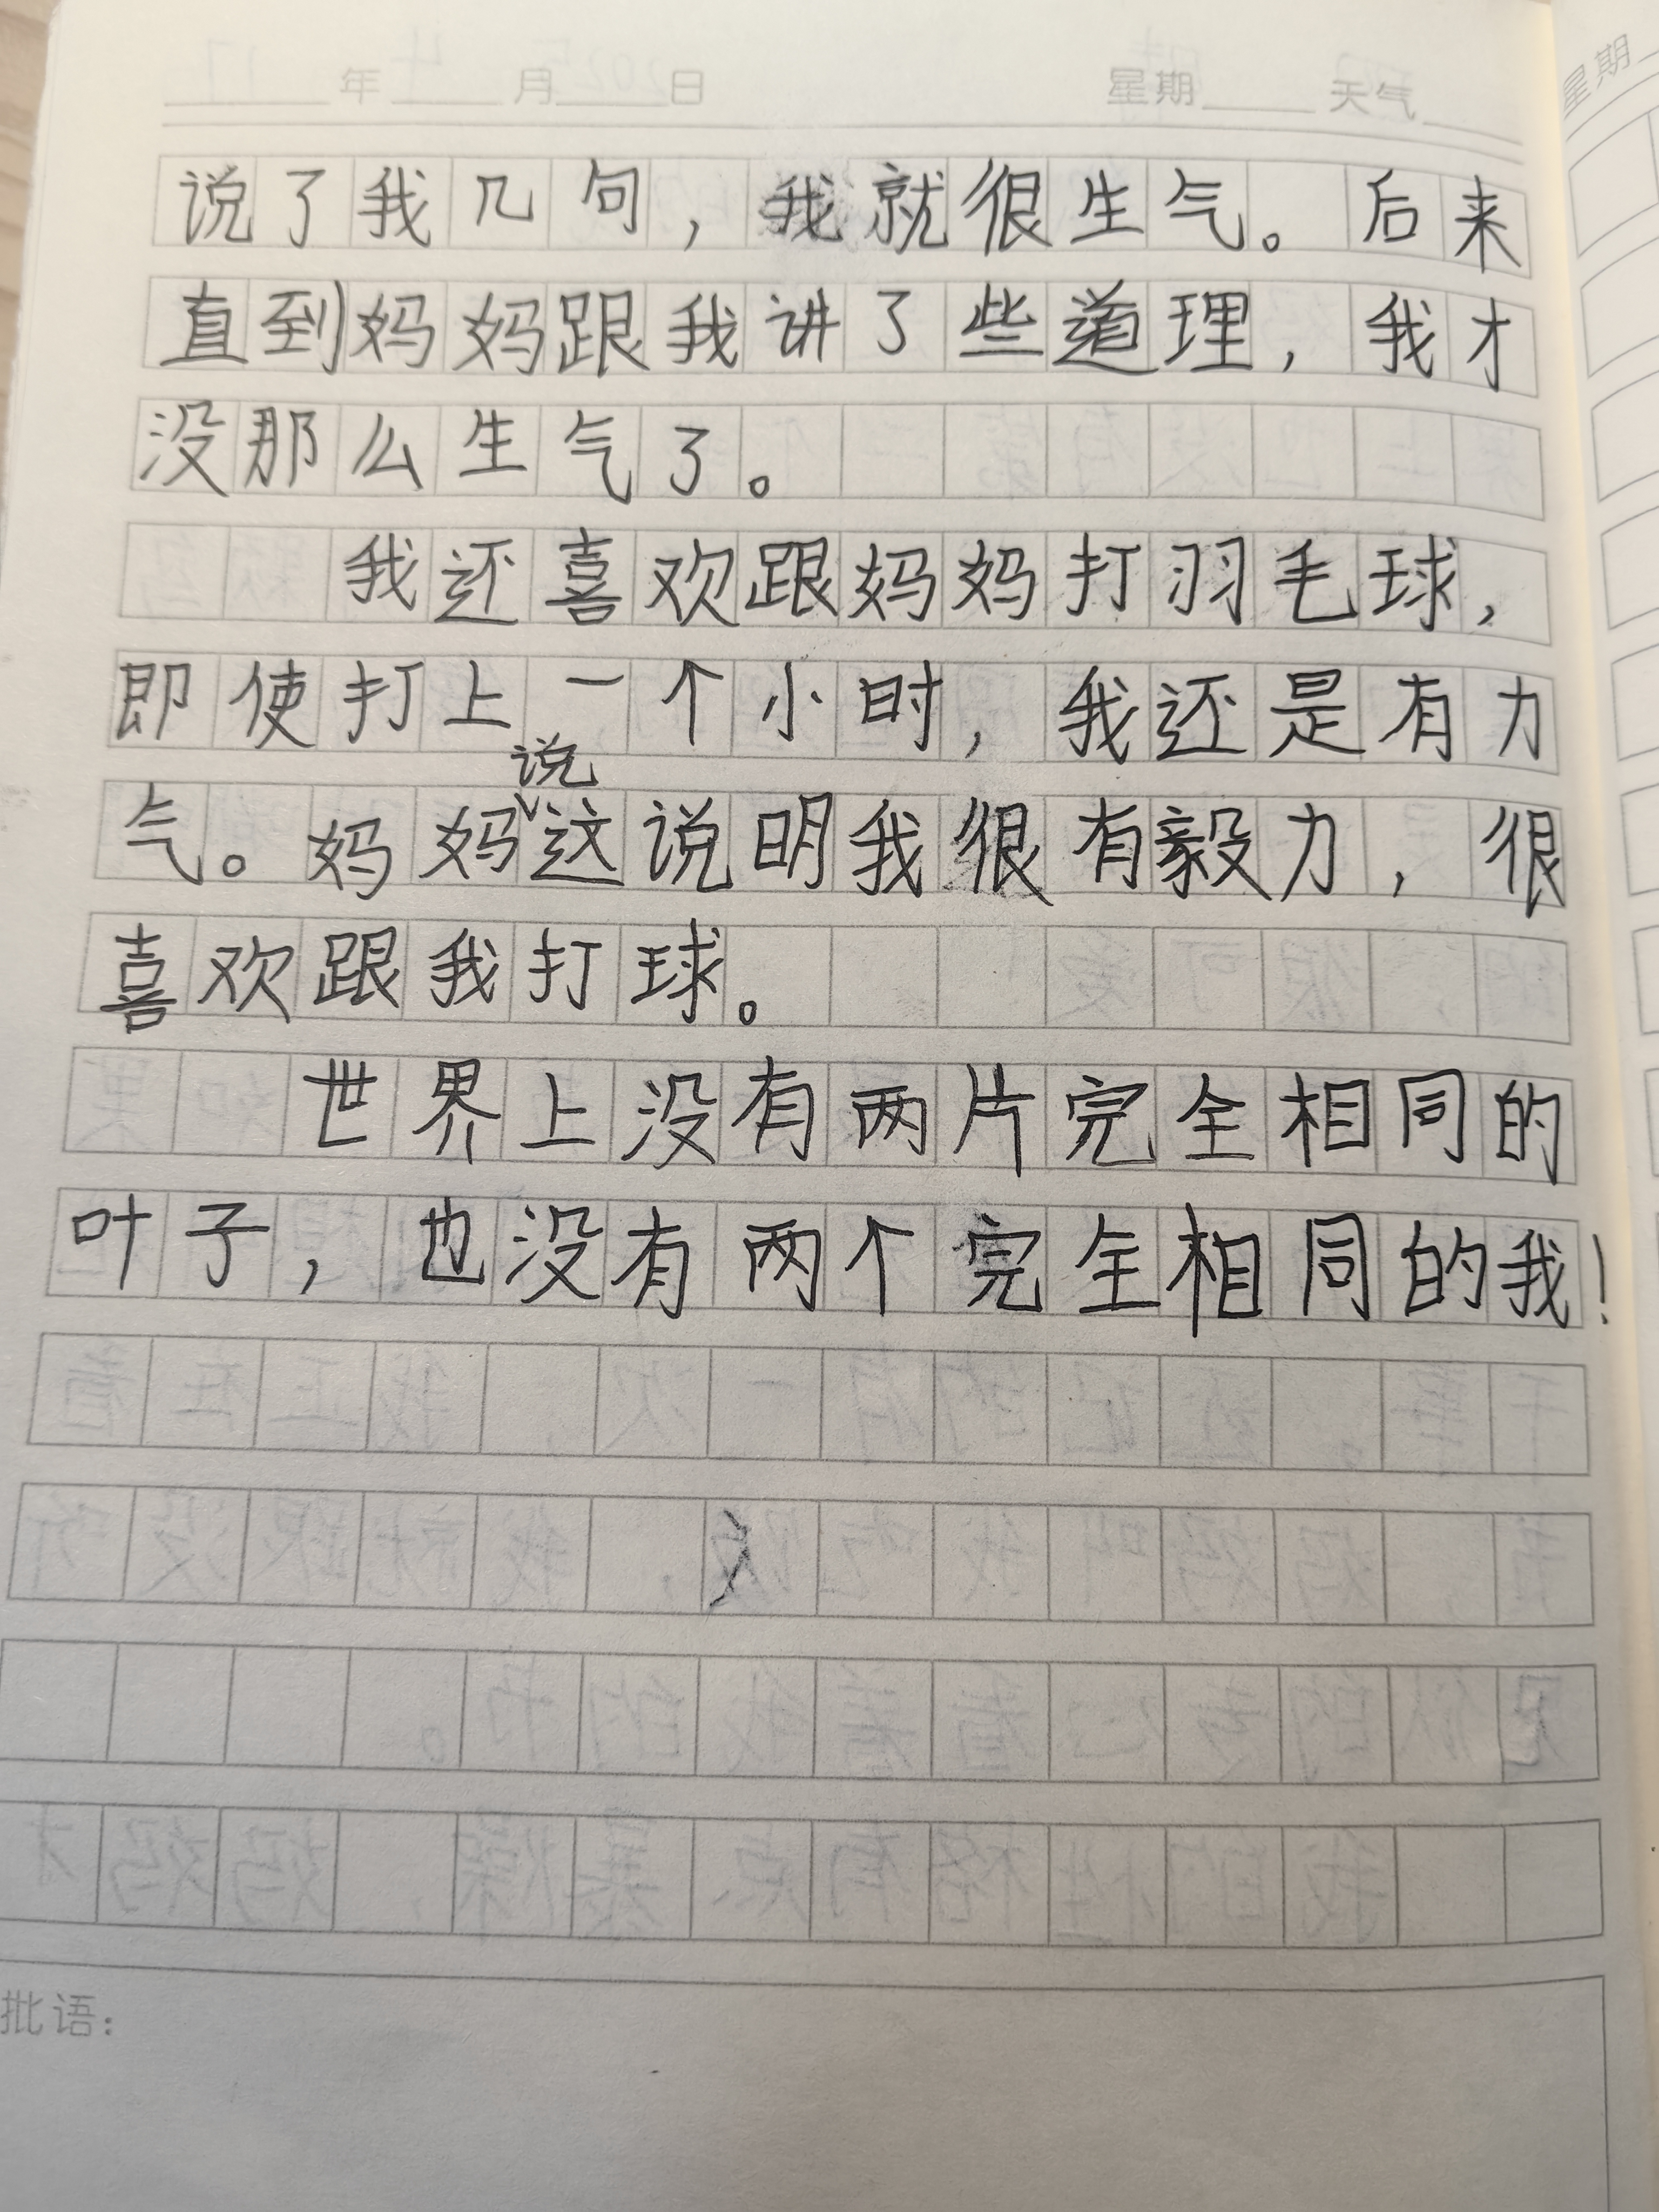 年 月 日 星期 天气
说了我几句，我就很生气。后来
直到妈妈跟我讲了些道理，我才
没那么生气了。
我还喜欢跟妈妈打羽毛球，
即使打上一个小时，我还是有力
气。妈妈说这说明我很有毅力，很
喜欢跟我打球。
世界上没有两片完全相同的
叶子，也没有两个完全相同的我！
批语：
星期